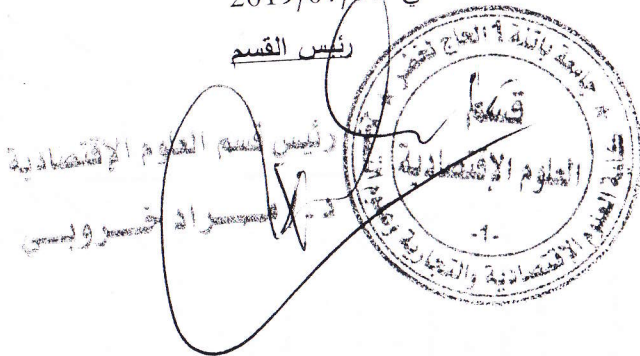 رئيس القسم
رئيس قسم العلوم الإقتصادية
د. مراد خروبي
جامعة باتنة 1 الحاج لخضر
قسم
العلوم الإقتصادية
-1-
كلية العلوم الإقتصادية والتجارية وعلوم